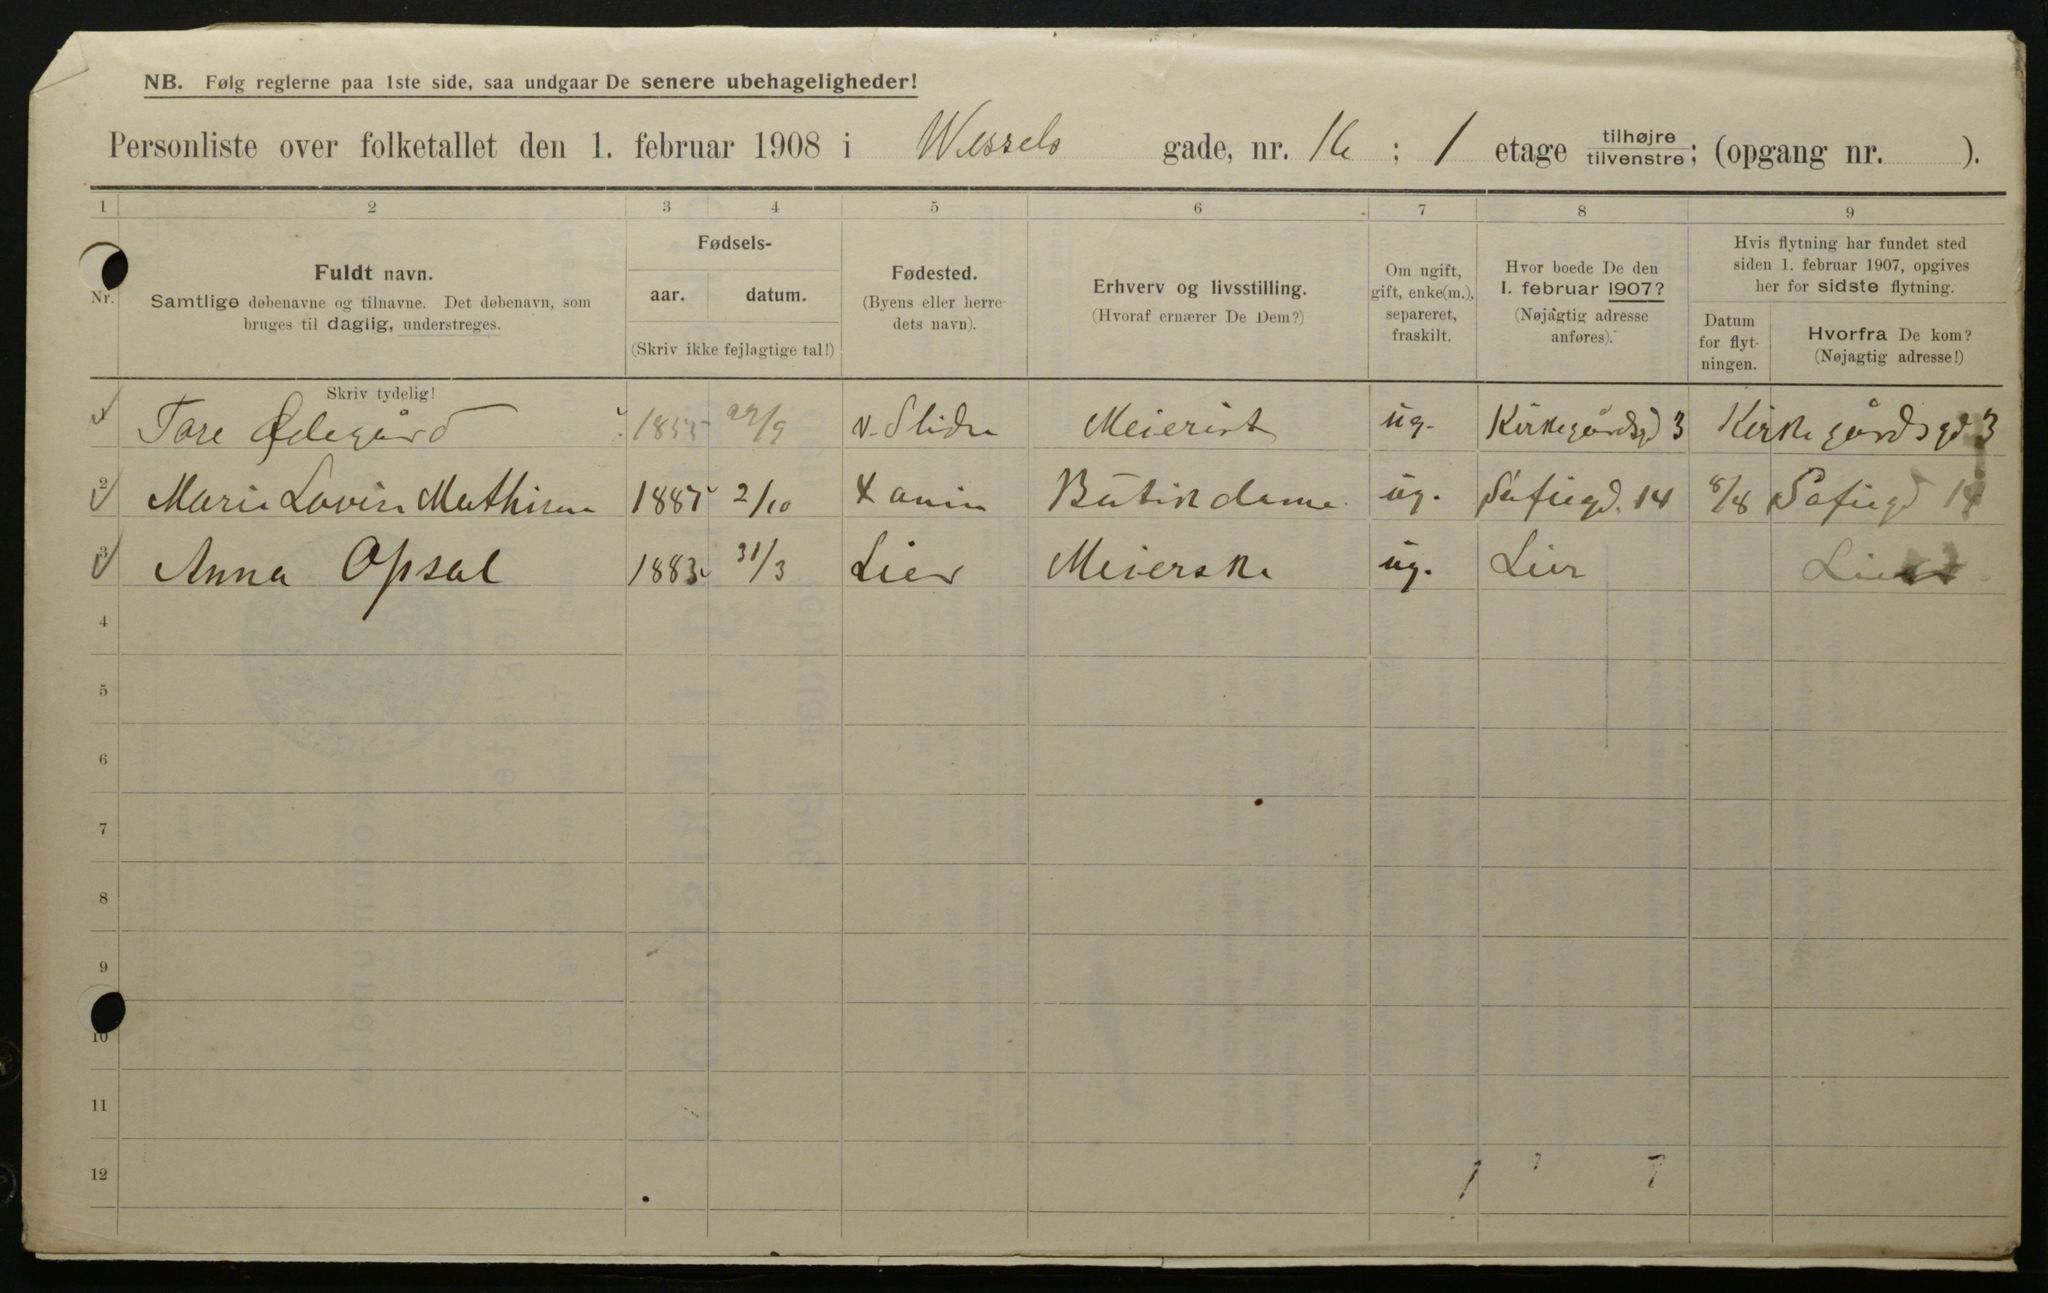 NB. Følg reglerne paa 1ste side, saa undgaar De senere ubehageligheder!
Personliste over folketallet den 1. februar 1908 i Wessels gade, nr. 16; 1 etage tilhøjre tilvenstre; (opgang nr. ).
1 2 3 4 5 6 7 8 9
Nr.
Fuldt navn.
Samtlige døbenavne og tilnavne. Det døbenavn, som
bruges til daglig, understreges.
Skriv tydelig!
Fødsels-
aar. datum.
(Skriv ikke fejlagtige tal!)
Fødested.
(Byens eller herre-
dets navn).
Erhverv og livsstilling.
(Hvoraf ernærer De Dem?)
Om ugift,
gift, enke(m.),
separeret,
fraskilt.
Hvor boede De den
1. februar 1907?
(Nøjagtig adresse
anføres).
Hvis flytning har fundet sted
siden 1. februar 1907, opgives
her for sidste flytning.
Datum
for flyt-
ningen.
Hvorfra De kom?
(Nøjagtig adresse!)
1 Tore Ødegård 1855 22/9 v. Slidre Meierist ug. Kirkegårdsgd 3 Kirkegårdsgd 3
2 Marie Lovise Mathisen 1887 2/10 Butikdame ug. Sofiegd. 14 8/8 Sofiegd 14
3 Anna Opsal 1883 31/3 Lier Meierske ug. Lier Lier
4
5
6
7
8
9
10
11
12